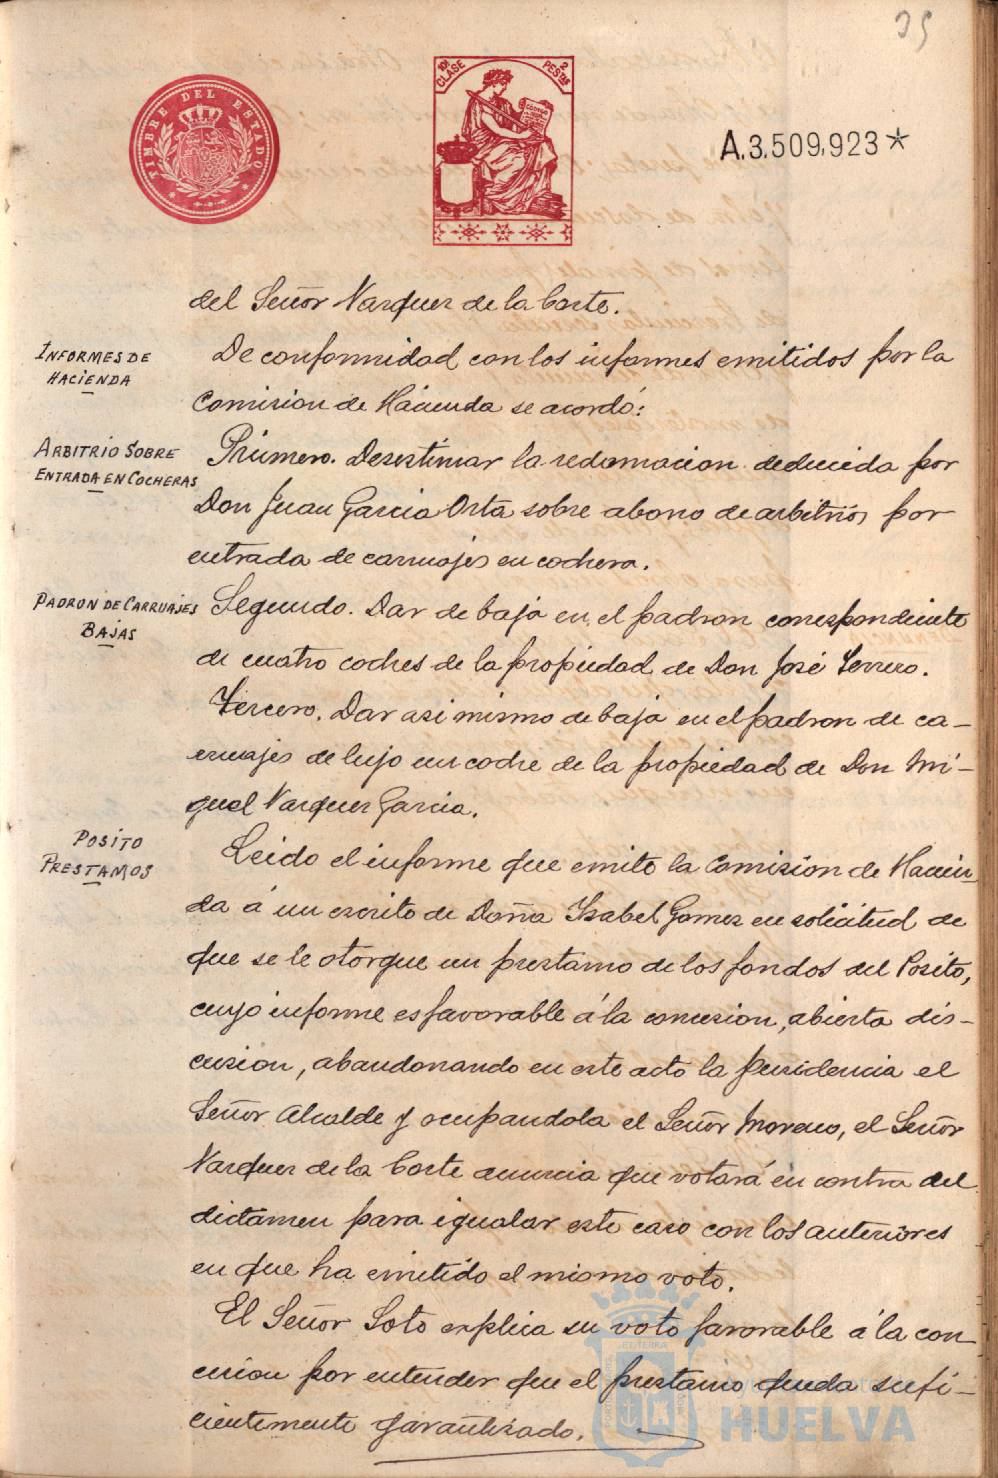 35
TIMBRE DEL ESTADO
10ª CLASE
2 PESTAS
A.3.509.923*
del Señor Vazquez de la Corte.
INFORMES DE
HACIENDA
De conformidad con los informes emitidos por la
Comision de Hacienda se acordó:
ARBITRIO SOBRE
ENTRADA EN COCHERAS
Primero. Desestimar la reclamacion deducida por
Don Juan Garcia Orta sobre abono de arbitrios por
entrada de carruajes en cochera.
PADRON DE CARRUAJES
BAJAS
Segundo. Dar de baja en el padron correspondiente
de cuatro coches de la propiedad de Don José
Tercero. Dar asi mismo de baja en el padron de ca-
rruajes de lujo un coche de la propiedad de Don Mi-
guel Vazquez Garcia.
POSITO
PRESTAMOS
Leido el informe que emite la Comision de Hacien-
da á un escrito de Doña Ysabel Gomez en solicitud de
que se le otorgue un prestamo de los fondos del Posito,
cuyo informe es favorable á la concesion, abierta dis-
cusion, abandonando en este acto la presidencia el
Señor Alcalde y ocupandola el Señor Moreno, el Señor
Vazquez de la Corte anuncia que votará en contra del
dictamen para igualar este caso con los anteriores
en que ha emitido el mismo voto.
El Señor Soto explica su voto favorable á la con
cesion por entender que el prestamo queda sufi-
cientemente garantizado.
HUELVA